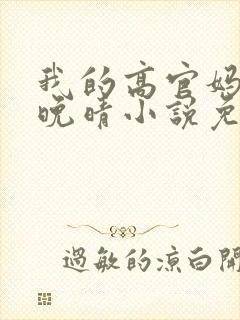 我的高官妈
晚晴小说免
过敏的凉白开